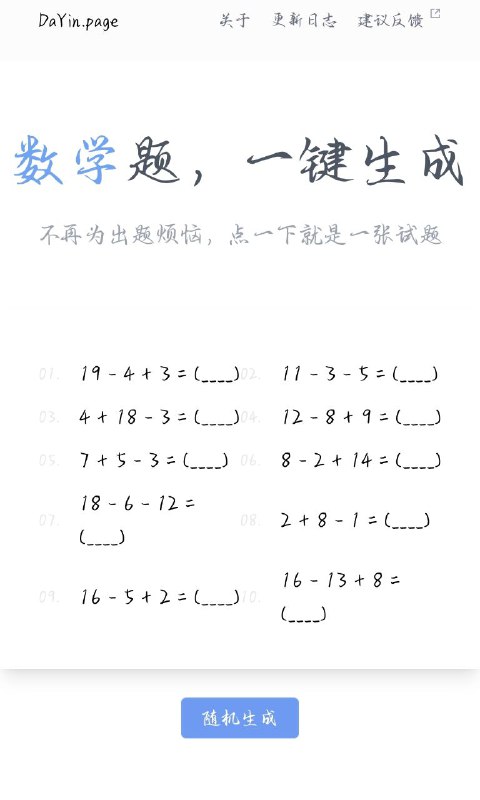 DaYin.page 关于 更新日志 建议反馈
数学题，一键生成
不再为出题烦恼，点一下就是一张试题
01. 19 - 4 + 3 = (____) 02. 11 - 3 - 5 = (____)
03. 4 + 18 - 3 = (____) 04. 12 - 8 + 9 = (____)
05. 7 + 5 - 3 = (____) 06. 8 - 2 + 14 = (____)
07. 18 - 6 - 12 =
(____)
08. 2 + 8 - 1 = (____)
09. 16 - 5 + 2 = (____)
10. 16 - 13 + 8 =
(____)
随机生成